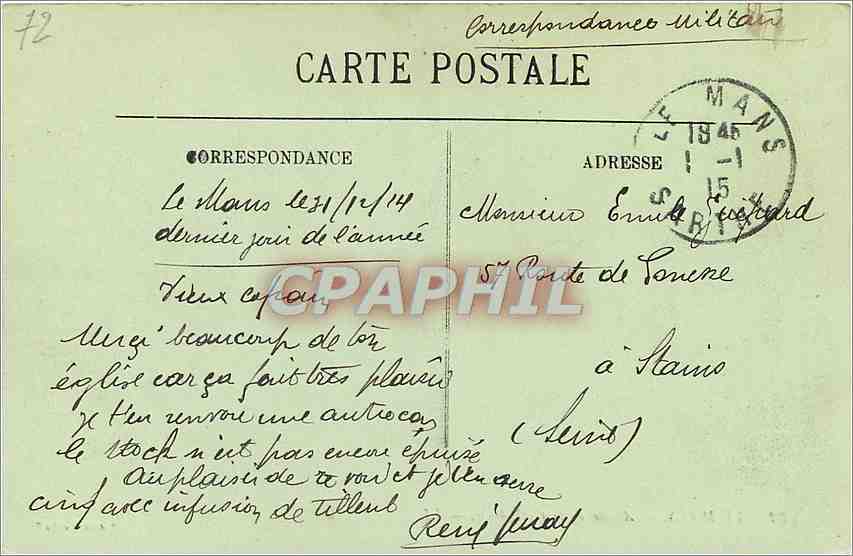 72
Correspondance Militaire
CARTE POSTALE
LE MANS
18 45
1 - 1
15
SARTHE
CORRESPONDANCE
Le Mans le 31/12/14
dernier jour de l'année
Vieux copain
Merçi beaucoup de ton
église car ça fait très plaisir
je t'en renvoie une autre car
le stock n'est pas encore épuisé
Au plaisir de te voir et je t'en serre
cinq avec infusion de tilleul
René
ADRESSE
Monsieur Emile
57 Route de Gonesse
à Stains
(Seine)
CPAPHIL